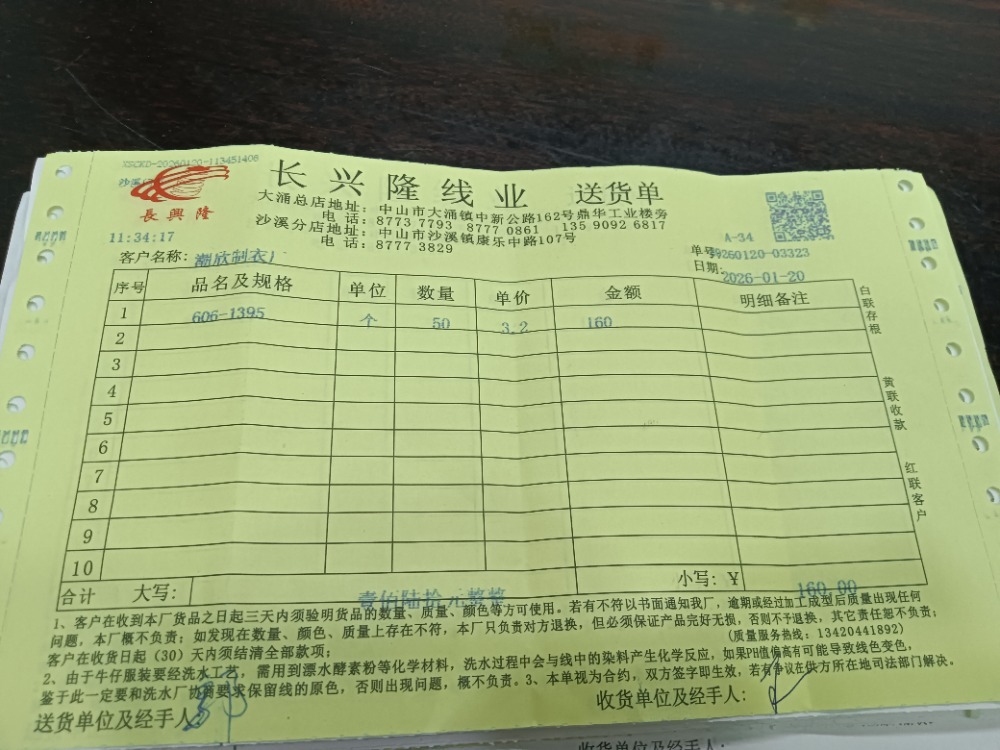 XSCKD-20260120-113451408
長興隆
长兴隆线业 送货单
大涌总店地址：中山市大涌镇中新公路162号鼎华工业楼旁
电话：8773 7793 8777 0861 135 9092 6817
沙溪分店地址：中山市沙溪镇康乐中路107号
电话：8777 3829
11:34:17
A-34
客户名称：潮欣制衣厂
单号
260120-03323
日期：2026-01-20
序号 品名及规格 单位 数量 单价 金额 明细备注
1 606-1395 个 50 3.2 160
2
3
4
5
6
7
8
9
10
合计 大写：壹佰陆拾元整 小写：￥ 160.00
白联存根
黄联收款
红联客户
1、客户在收到本厂货品之日起三天内须验明货品的数量、质量、颜色等方可使用。若有不符以书面通知我厂，逾期或经过加工成型后质量出现任何
问题，本厂概不负责；如发现在数量、颜色、质量上存在不符，本厂只负责对方退换，但必须保证产品完好无损，否则不予退换，其它责任恕不负责；
客户在收货日起（30）天内须结清全部款项；
（质量服务热线：13420441892）
2、由于牛仔服装要经洗水工艺，需用到漂水酵素粉等化学材料，洗水过程中会与线中的染料产生化学反应，如果PH值偏高有可能导致线色变色，
鉴于此一定要和洗水厂协商要求保留线的原色，否则出现问题，概不负责。3、本单视为合约，双方签字即生效，若有争议在供方所在地司法部门解决。
送货单位及经手人：
收货单位及经手人：
收货单位及经手人：